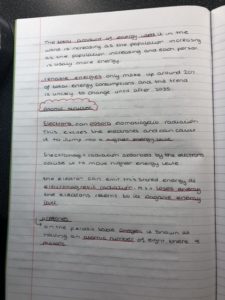 The total amount of energy used in the
world is increasing as the population increasing
as the population increasing and each person
is using more energy.
renewable energies only make up around 20%
of total energy consumption and this trend
is unlikely to change until after 2035
atomic structure
Electrons can absorb electromagnetic radiation
This excites the electrons and can cause
it to jump to a higher energy level
electromagnetic radiation absorbed by the electrons
cause it to move higher energy level
the electron can emit this stored energy as
electromagnetic radiation. As it loses energy
the electrons returns to its original energy
level
on the periodic table oxygen is shown as
having an atomic number of eight there 8
protons